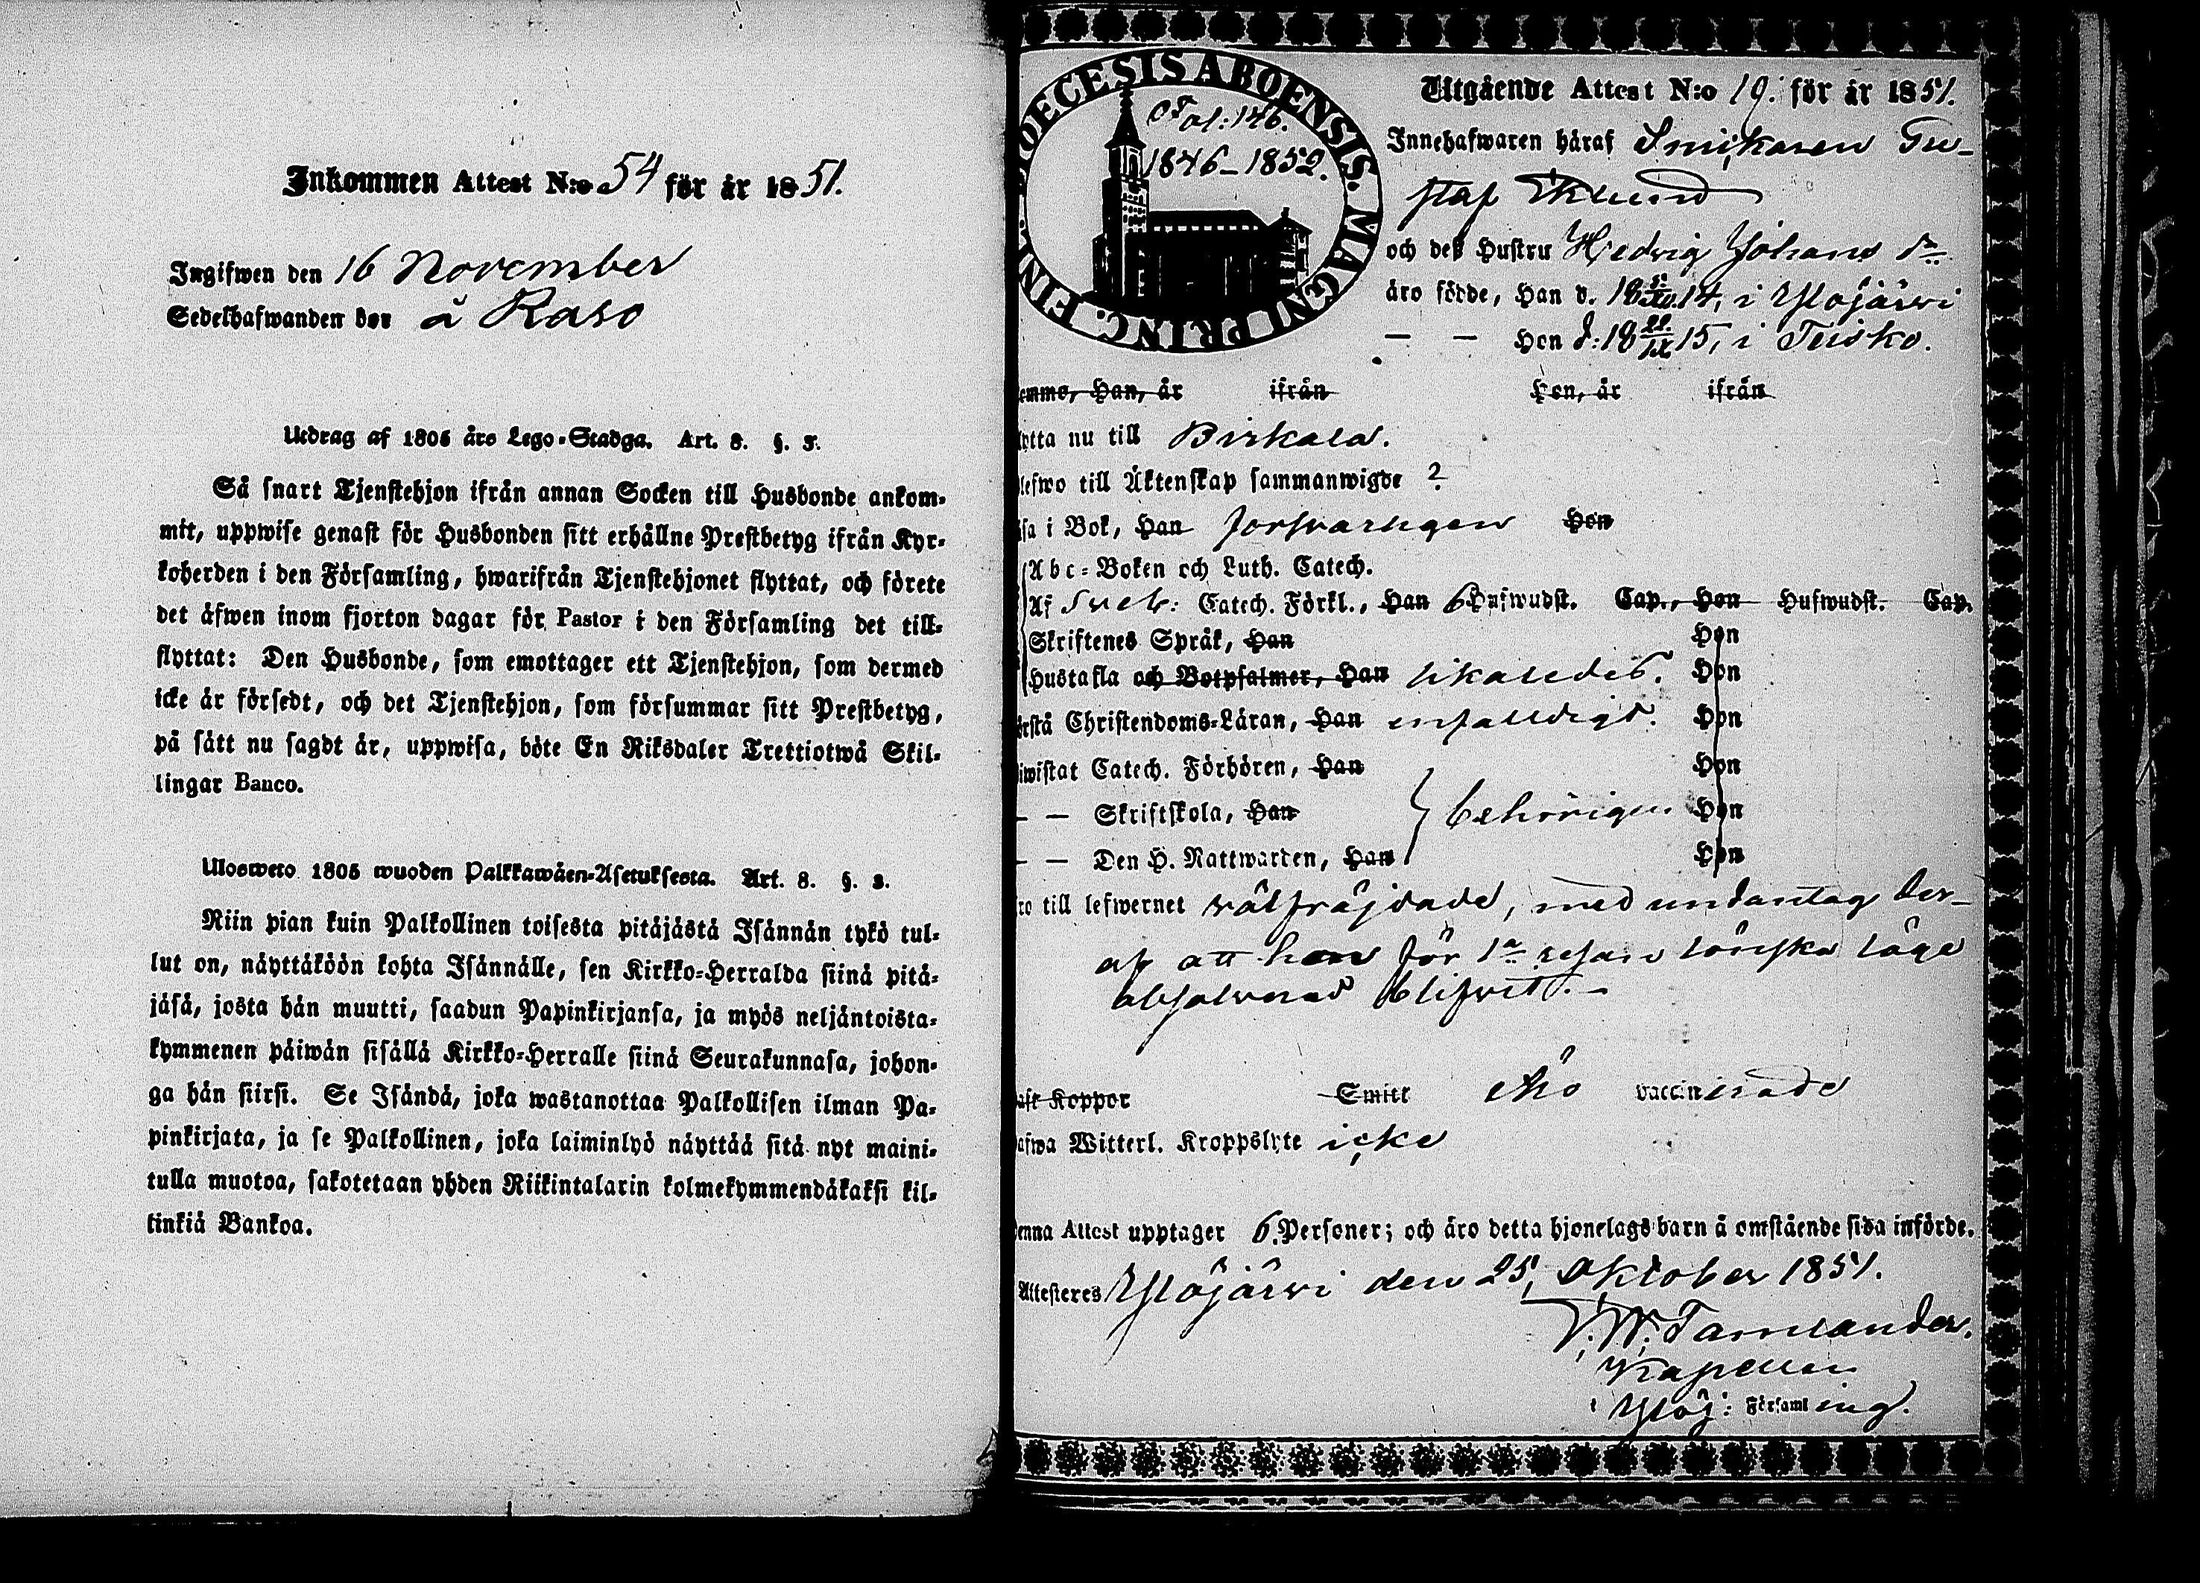 Inkommen Attest N:o 54 för år 1851.
Ingifwen den 16 November
Sedelhafwanden bor å Raso
Utdrag af 1805 års Lego-Stadga. Art. 8. §. 3.
Så snart Tjenstehjon ifrån annan Socken till Husbonde ankom-
mit, uppwise genast för Husbonden sitt erhållne Prestbetyg ifrån Kyr-
koherden i den Församling, hwarifrån Tjenstehjonet flyttat, och förete
det äfwen inom fjorton dagar för Pastor i den Församling det till-
flyttat: Den Husbonde, som emottager ett Tjenstehjon, som dermed
icke är försedt, och det Tjenstehjon, som försummar sitt Prestbetyg,
på sätt nu sagdt är, uppwisa, böte En Riksdaler Trettiotwå Skil-
lingar Banco.
Ulosweto 1805 wuoden Palkkawäen-Asetuksesta. Art. 8. §. 3.
Niin pian kuin Palkollinen toisesta pitäjästä Isännän tykö tul-
lut on, näyttäköön kohta Isännälle, sen Kirkko-Herralda siinä pitä-
jäsä, josta hän muutti, saadun Papinkirjansa, ja myös neljäntoista-
kymmenen päiwän sisällä Kirkko-Herralle siinä Seurakunnasa, johon-
ga hän siirsi. Se Isändä, joka wastanottaa Palkollisen ilman Pa-
pinkirjata, ja se Palkollinen, joka laiminlyö näyttää sitä nyt maini-
tulla muotoa, sakotetaan yhden Riikintalarin kolmekymmendäkaksi kil-
linkiä Bankoa.
DIOECESIS ABOENSIS. MAGNI PRINC. FINL.
Fol: 146.
1846-1852.
Utgående Attest N:o 19. för år 1851.
Innehafwaren häraf Smikaren Gu-
staf Eklund
och deß Hustru Hedvig Johans dr.
äro födde, Han d. 18 14, i Ylöjärvi
— — Hon d: 18 22/IX 15, i Teisko.
komme, Han, år ifrån Hon, år ifrån
flytta nu till Birkala.
blefwo till Äktenskap sammanwigde ?
läsa i Bok, Han forsvarligen Hon
Abc-Boken och Luth. Catech.
Af Sveb: Catech. Förkl., Han 6 Hufwudst. Cap., Hon Hufwudst. Cap.
Skriftenes Språk, Han Hon
Hustafla och Botpsalmer, Han likaledes. Hon
förstå Christendoms-Läran, Han enfaldigt. Hon
biwistat Catech. Förhören, Han Hon
— — Skriftskola, Han behörigen Hon
— — Den H. Nattwarden, Han Hon
äro till lefwernet välfräjdade, med undantag der-
af att han för 1a resan lönska läge
absolverad blifvit.
haft Koppor Smitt Äro vaccinerade
hafwa Witterl. Kroppslyte icke
Denna Attest upptager 6. Personer; och äro detta hjonelags barn å omstående sida införde.
Attesteres Ylöjärvi den 25, Oktober 1851.
V. W. Tamlander.
Kapellan
i Ylöj: Församling.